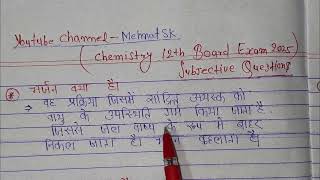 Youtube channel - Mehnat SK
(Chemistry 12th Board Exam 2025)
Subjective Questions
* भर्जन क्या है।
→ वह प्रक्रिया जिसमें सांद्रित अयस्क को
वायु के उपस्थिति गर्म किया जाता है
जिससे जल वाष्प के रूप में बाहर
निकल जाता है। कहलाता है।